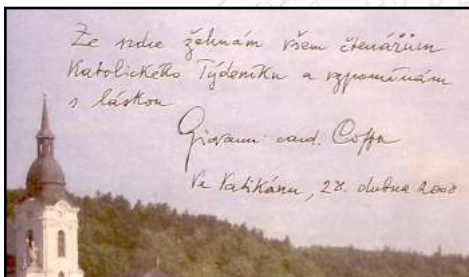 Ze srdce žehnám všem čtenářům
Katolického Týdeníku a vzpomínám
s láskou
Giovanni card. Coppa
Ve Vatikánu, 28. dubna 2008